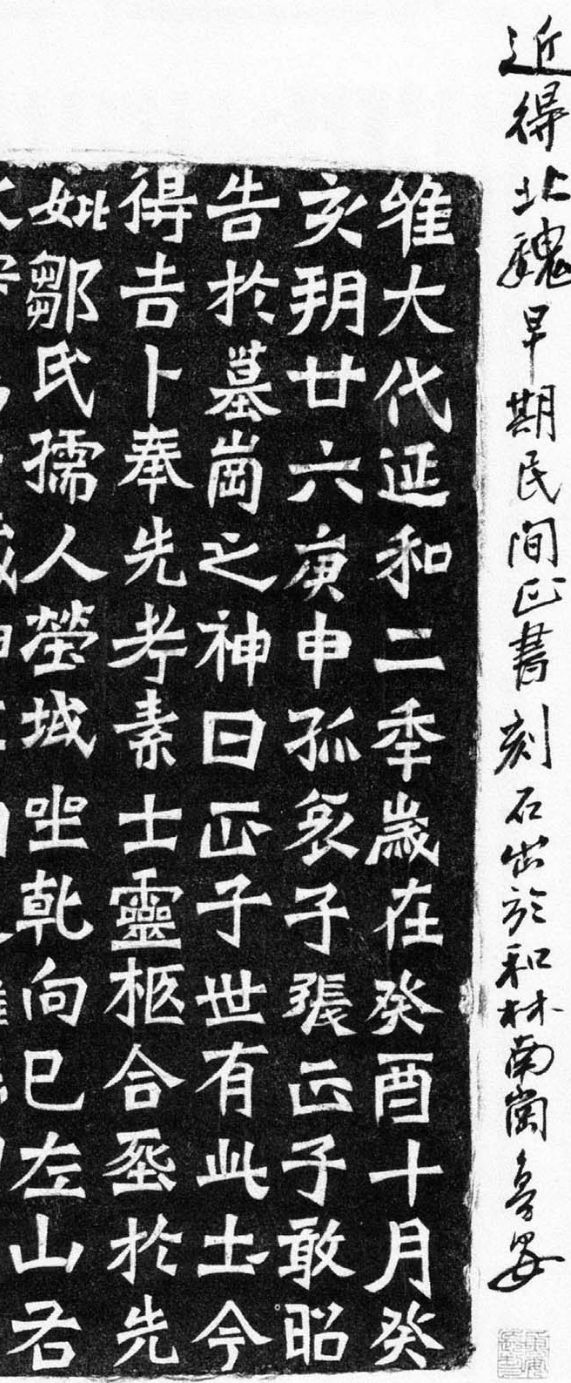 近得北魏早期民间正書刻石出於和林南崗
維大代延和二秊歲在癸酉十月癸
亥朔廿六庚申孤哀子張正子敢昭
告於墓崗之神曰正子世有此土今
得吉卜奉先考素士靈柩合葬於先
妣鄒氏孺人塋域坐乾向巳左山右